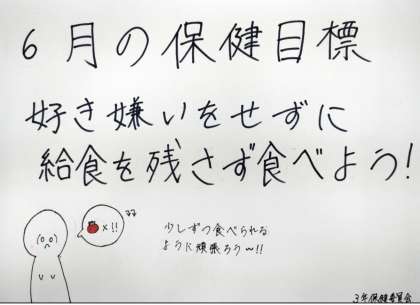 6月の保健目標
好き嫌いをせずに
給食を残さず食べよう!
×!!
少しずつ食べられる
ように頑張ろう〜!!
3年保健委員会